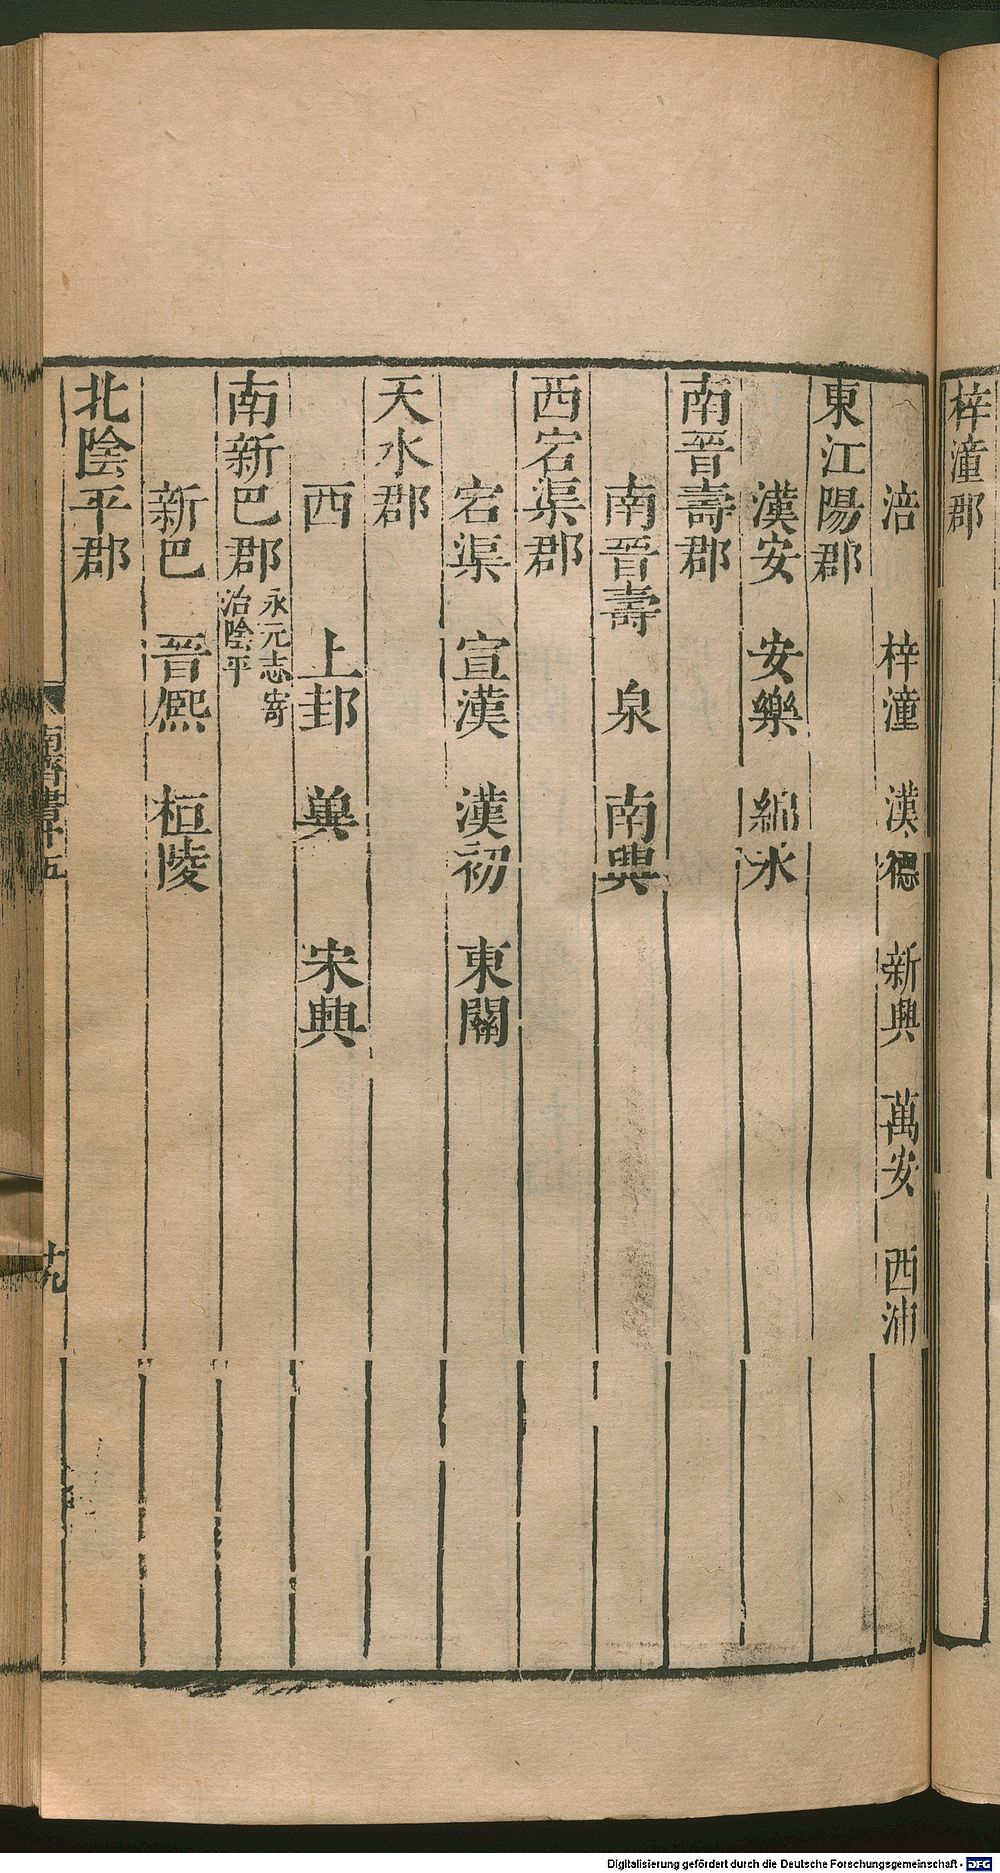 梓潼郡
涪 梓潼 漢德 新興 萬安 西浦
東江陽郡
漢安 安樂 綿水
南晉壽郡
南晉壽 泉 南興
西宕渠郡
宕渠 宣漢 漢初 東關
天水郡
西 上邽 興 宋興
南新巴郡 永元志寄
治陰平
新巴 晉熙 桓陵
北陰平郡
南齊書十五
十九
Digitalisierung gefördert durch die Deutsche Forschungsgemeinschaft - DFG